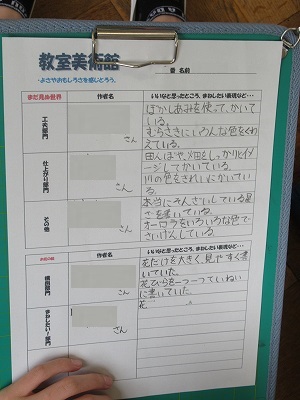 教室美術館
-よさやおもしろさを感じとろう-
番 名前
まだ見ぬ世界
作者名
いいなと思ったところ、まねしたい表現など…
工夫部門
さん
ぼかしあみを使って、かいて
いる。
むらさきにいろんな色をくわ
えている。
仕上がり部門
さん
田んぼや、畑をしっかりとイメ
ージしてかいている。
川の色をきれいにかいてい
る。
その他
さん
本当にそんざいしている星
さを書いている。
オーロラをいろいろな色で
さいげんしている。
作者名
いいなと思ったところ、まねしたい表現など…
構図部門
さん
花だけを大きく、見やすく書
いていた。
花びらを一つ一つていねい
に書いていた。
まねしたい!部門
さん
花